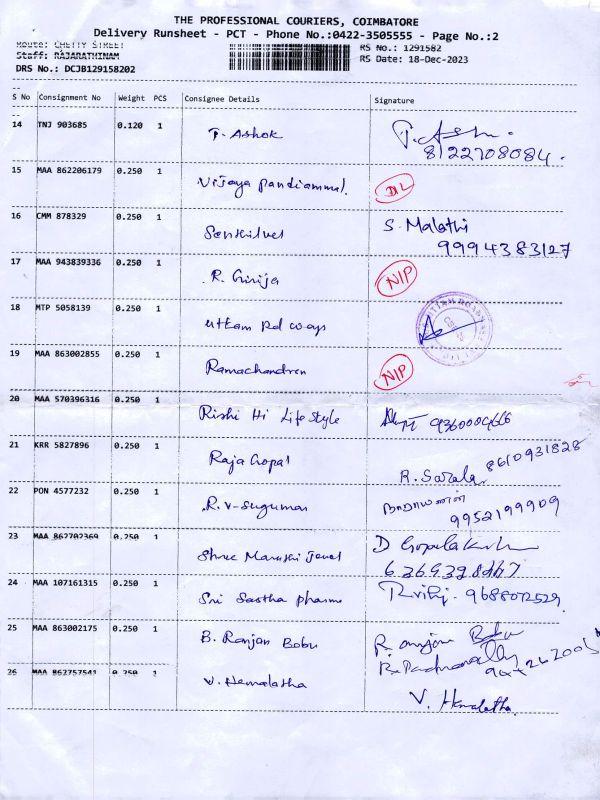 THE PROFESSIONAL COURIERS, COIMBATORE
Delivery Runsheet - PCT - Phone No.:0422-3505555 - Page No.:2
Route: CHETTY STREET
RS No.: 1291582
Staff: RAJARATHINAM
RS Date: 18-Dec-2023
DRS No.: DCJB129158202
S No Consignment No Weight PCS Consignee Details Signature
14 TNJ 903685 0.120 1 T. Ashok T. Ash
8122708084.
15 MAA 862206179 0.250 1 Vijaya Pandiammal. DL
16 CMM 878329 0.250 1 Senthilvel S. Malathi
9994383127
17 MAA 943839336 0.250 1 R. Girija NIP
18 MTP 5058139 0.250 1 uttam Rd ways
19 MAA 863002855 0.250 1 Ramachandren NIP
20 MAA 570396316 0.250 1 Rishi Hi Life Style
21 KRR 5827896 0.250 1 Raja Gopal R. Sarala 8610931828
22 PON 4577232 0.250 1 R. V. Sugumar நாராயணன்
9952199909
23 MAA 862702369 0.250 1 Shree Maruthi Jewel D Gopalakrishnan
24 MAA 107161315 0.250 1 Sri Sastha pharma 9688072529.
25 MAA 863002175 0.250 1 B. Ranjan Babu R. anjan Babu
26 MAA 862757541 0.250 1 V. Hemalatha V. Hemalatha.